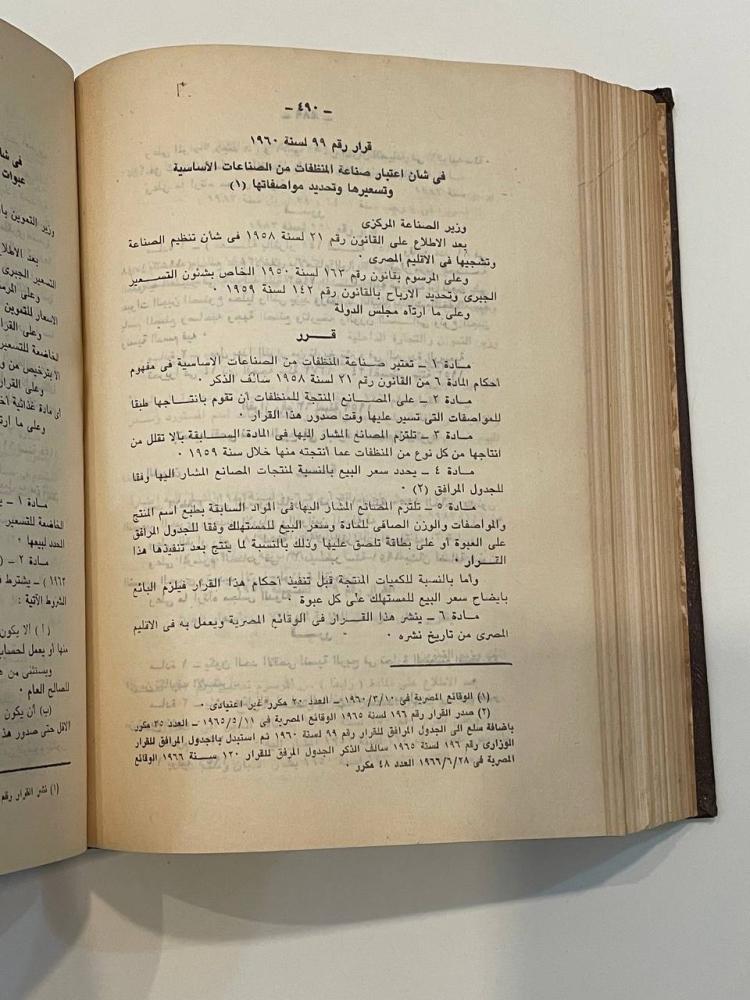 - ٤٩٠ -
قرار رقم ٩٩ لسنة ١٩٦٠
فى شان اعتبار صناعة المنظفات من الصناعات الأساسية
وتسعيرها وتحديد مواصفاتها (١)
وزير الصناعة المركزى
بعد الاطلاع على القانون رقم ٢١ لسنة ١٩٥٨ فى شان تنظيم الصناعة
وتشجيها فى الاقليم المصرى ٠
وعلى المرسوم بقانون رقم ١٦٣ لسنة ١٩٥٠ الخاص بشئون التسعير
الجبرى وتحديد الارباح بالقانون رقم ١٤٢ لسنة ١٩٥٩ ٠
وعلى ما ارتآه مجلس الدولة
قرر
مادة ١ - تعتبر صناعة المنظفات من الصناعات الأساسية فى مفهوم
أحكام المادة ٦ من القانون رقم ٢١ لسنة ١٩٥٨ سالف الذكر ٠
مادة ٢ - على المصانع المنتجة للمنظفات أن تقوم بانتاجها طبقا
للمواصفات التى تسير عليها وقت صدور هذا القرار ٠
مادة ٣ - تلتزم المصانع المشار اليها فى المادة السابقة بالا تقلل من
انتاجها من كل نوع من المنظفات عما أنتجته منها خلال سنة ١٩٥٩ ٠
مادة ٤ - يحدد سعر البيع بالنسبة لمنتجات المصانع المشار اليها وفقا
للجدول المرافق (٢) ٠
مادة ٥ - تلتزم المصانع المشار اليها فى المواد السابقة بطبع اسم المنتج
والمواصفات والوزن الصافى للمادة وسعر البيع للمستهلك وفقا للجدول المرافق
على العبوة أو على بطاقة تلصق عليها وذلك بالنسبة لما ينتج بعد تنفيذها هذا
القرار ٠
وأما بالنسبة للكميات المنتجة قبل تنفيذ أحكام هذا القرار فيلزم البائع
بايضاح سعر البيع للمستهلك على كل عبوة ٠
مادة ٦ - ينشر هذا القرار فى الوقائع المصرية ويعمل به فى الاقليم
المصرى من تاريخ نشره ٠
(١) الوقائع المصرية فى ١٩٦٠/٣/١٠ - العدد ٢٠ مكرر غير اعتيادى ٠
(٢) صدر القرار رقم ١٩٦ لسنة ١٩٦٥ الوقائع المصرية فى ١٩٦٥/٥/١١ - العدد ٣٥ مكرر
باضافة سلع الى الجدول المرافق للقرار رقم ٩٩ لسنة ١٩٦٠ ثم استبدل بالجدول المرافق للقرار
الوزارى رقم ١٩٦ لسنة ١٩٦٥ سالف الذكر الجدول المرفق للقرار ١٣٠ سنة ١٩٦٦ الوقائع
المصرية فى ١٩٦٦/٦/٢٨ العدد ٤٨ مكرر ٠
فى شان
عبوات
وزير التموين
بعد الاطلاع
التسعير الجبرى
وعلى المرس
الاسعار للتموين
وعلى القرار
الخاضعة للتسعير
الا بترخيص من
وعلى القرار
أى مادة غذائية
وعلى ما ارتآ
مادة ١ -
الخاضعة للتسعير
المحدد لبيعها ٠
مادة ٢ - (
١٩٦٢) - يشترط
الشروط الآتية :
(أ) ألا يكون
منها أو يعمل لحساب
ويستثنى من
للصالح العام ٠
(ب) أن يكون
الأقل حتى صدور هذ
(١) نشر القرار رقم